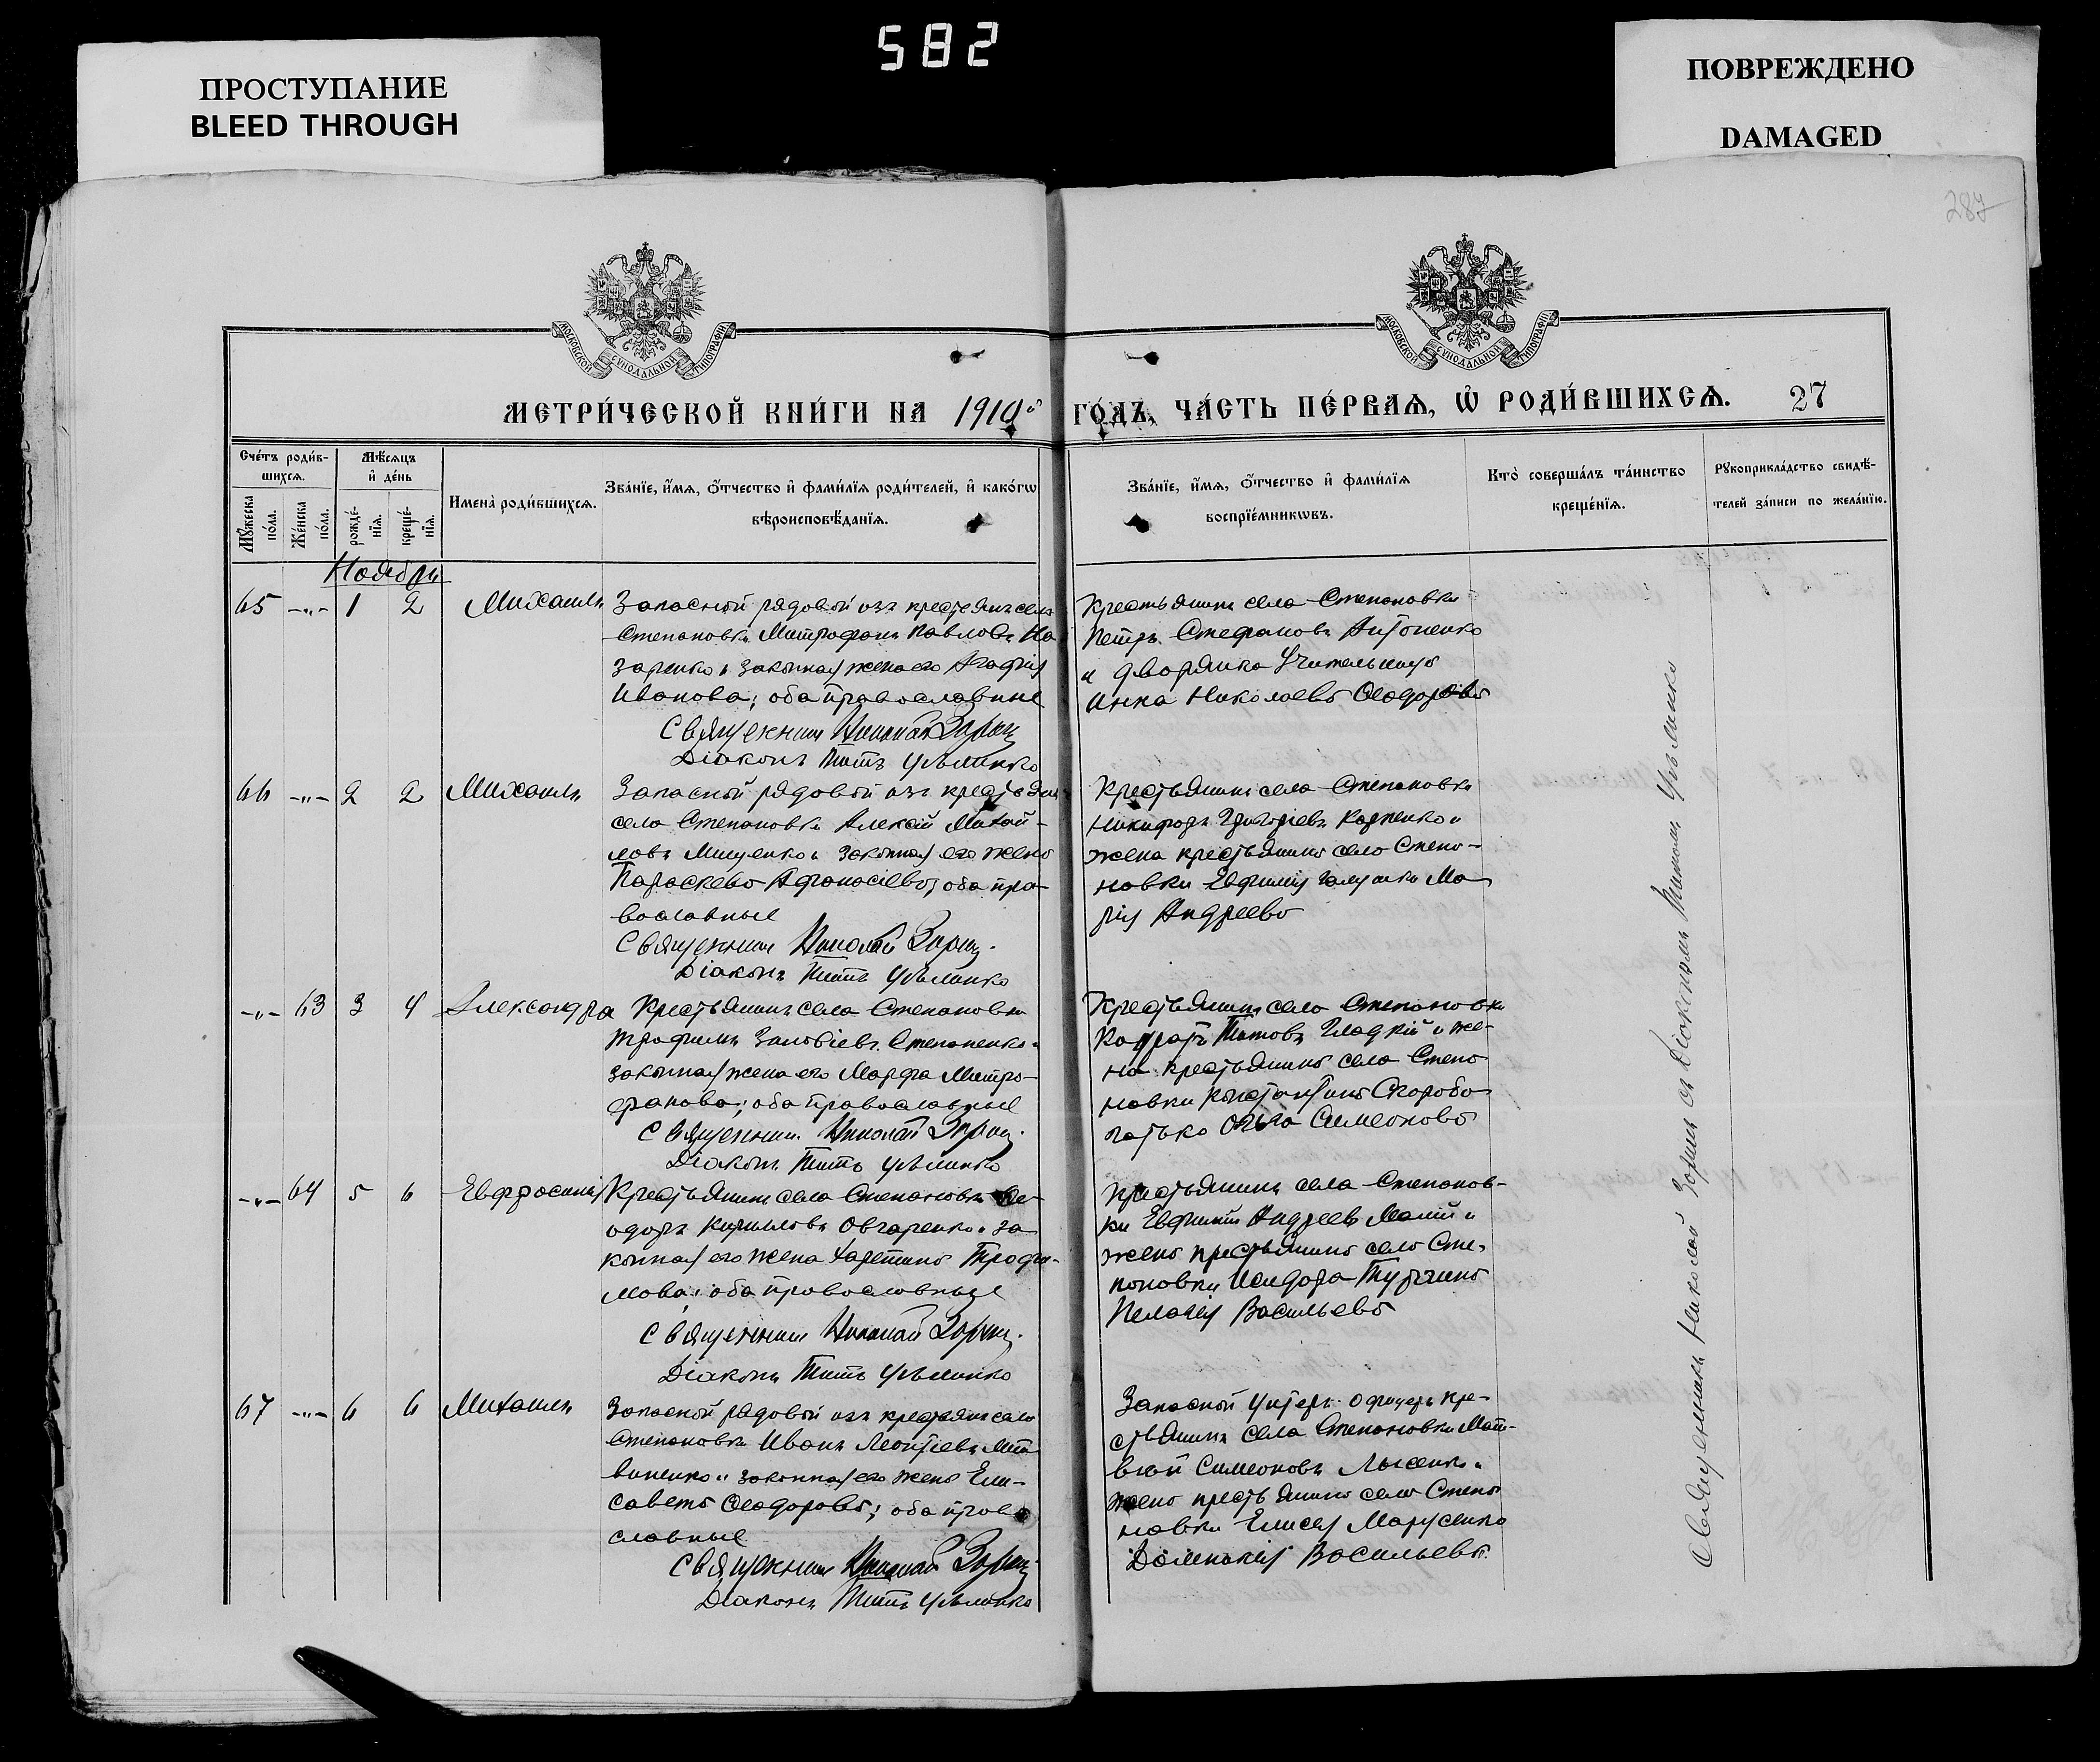 582
ПРОСТУПАНИЕ
BLEED THROUGH
ПОВРЕЖДЕНО
DAMAGED
287
МОСКОВСКОЙ СѴНОДАЛЬНОЙ ТИПОГРАФІИ
МОСКОВСКОЙ СѴНОДАЛЬНОЙ ТИПОГРАФІИ
МЕТРИ́ЧЕСКОЙ КНИ́ГИ НА 1910й ГО́ДЪ, ЧА́СТЬ ПЕ́РВАѦ, Ѡ҆ РОДИ́ВШИХСѦ. 27
Сче́тъ роди́в-
шихсѧ.
Мꙋ́жеска по́ла.
Же́нска по́ла.
Мѣ́сѧцъ
и҆ де́нь
рожде́-нїѧ.
креще́-нїѧ.
Имена̀ роди́вшихсѧ.
Зва́нїе, и҆́мѧ, ѻ҆́тчество и҆ фами́лїѧ роди́телей, и҆ како́гѡ
вѣроисповѣ́данїѧ.
Зва́нїе, и҆́мѧ, ѻ҆́тчество и҆ фами́лїѧ
воспрїе́мникѡвъ.
Кто̀ соверша́лъ та́инство
креще́нїѧ.
Рꙋкоприкла́дство свидѣ́-
телей за́писи по жела́нїю.
Ноябрь
65 -„- 1 2 Михаилъ
Запасной рядовой изъ крестьянъ села
Степановки Митрофанъ Павловъ На
заренко и законная жена его Агафія
Иванова; оба православные
Священникъ Николай Зоринъ
Діаконъ Титъ Усъмонко
Крестьянинъ села Степановки
Петръ Стефановъ Антоненко
и дворянка Учительница
Анна Николаева Ѳеодорова
66 -„- 2 2 Михаилъ
Запасной рядовой изъ крестьянъ
села Степановки Алексій Михай-
ловъ Мищенко и законная его жена
Параскева Афанасіева; оба пра-
вославные
Священникъ Николай Зоринъ
Діаконъ Титъ
Крестьянинъ села Степановки
Никифоръ Григоріевъ Карпенко и
жена крестьянина села Степа-
новки Евфимія Ма
рія Андреева
-„- 63 3 4 Александра
Крестьянинъ села Степановки
Трофимъ Зиновіевъ Степаненко и
законная жена его Марфа Митро-
фанова; оба православные
Священникъ Николай Зоринъ
Діаконъ Титъ
Крестьянинъ села Степановки
Кодратъ Титовъ Гладкій и же-
на крестьянина села Степа
новки Константина Скоробо
гатько Ольга Симеонова
-„- 64 5 6 Евфросинія
Крестьянинъ села Степановки Ѳе-
одоръ Кирилловъ Овчаренко и за
конная его жена Харетина Трофи-
мова; оба православные
Священникъ Николай Зоринъ
Діаконъ Титъ
Крестьянинъ села Степанов-
ки Евфимій Андреевъ Малий и
жена крестьянина села Сте-
пановки Исидора
Пелагія Васильева
67 -„- 6 6 Михаилъ
Запасной рядовой изъ крестьянъ села
Степановки Иванъ Леонтіевъ Лит
виненко и законная его жена Ели-
савета Ѳеодорова; оба право
славные
Священникъ Николай Зоринъ
Діаконъ Титъ
Запасной Унтеръ-офицеръ кре-
стьянинъ села Степановки Мат-
вій Симеоновъ Лысенко и
жена крестьянина села Степа
новки Елисея Марусенко
Домникія Васильева.
Священникъ Николай Зоринъ съ Діакономъ Титомъ